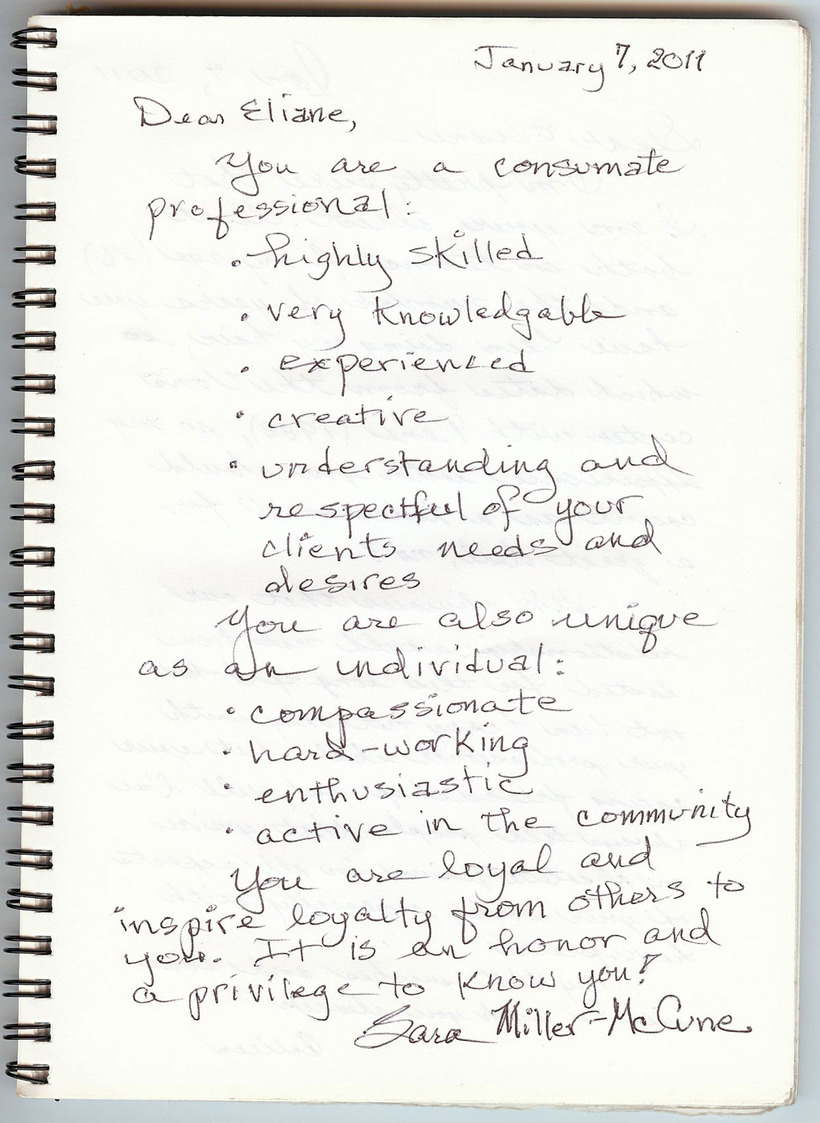 January 7, 2011
Dear Eliane,
You are a consumate
professional:
• highly skilled
• very knowledgable
• experienced
• creative
• understanding and
respectful of your
clients needs and
desires
You are also unique
as an individual:
• compassionate
• hard-working
• enthusiastic
• active in the community
You are loyal and
inspire loyalty from others to
you. It is an honor and
a privilege to know you!
Sara Miller-McCune